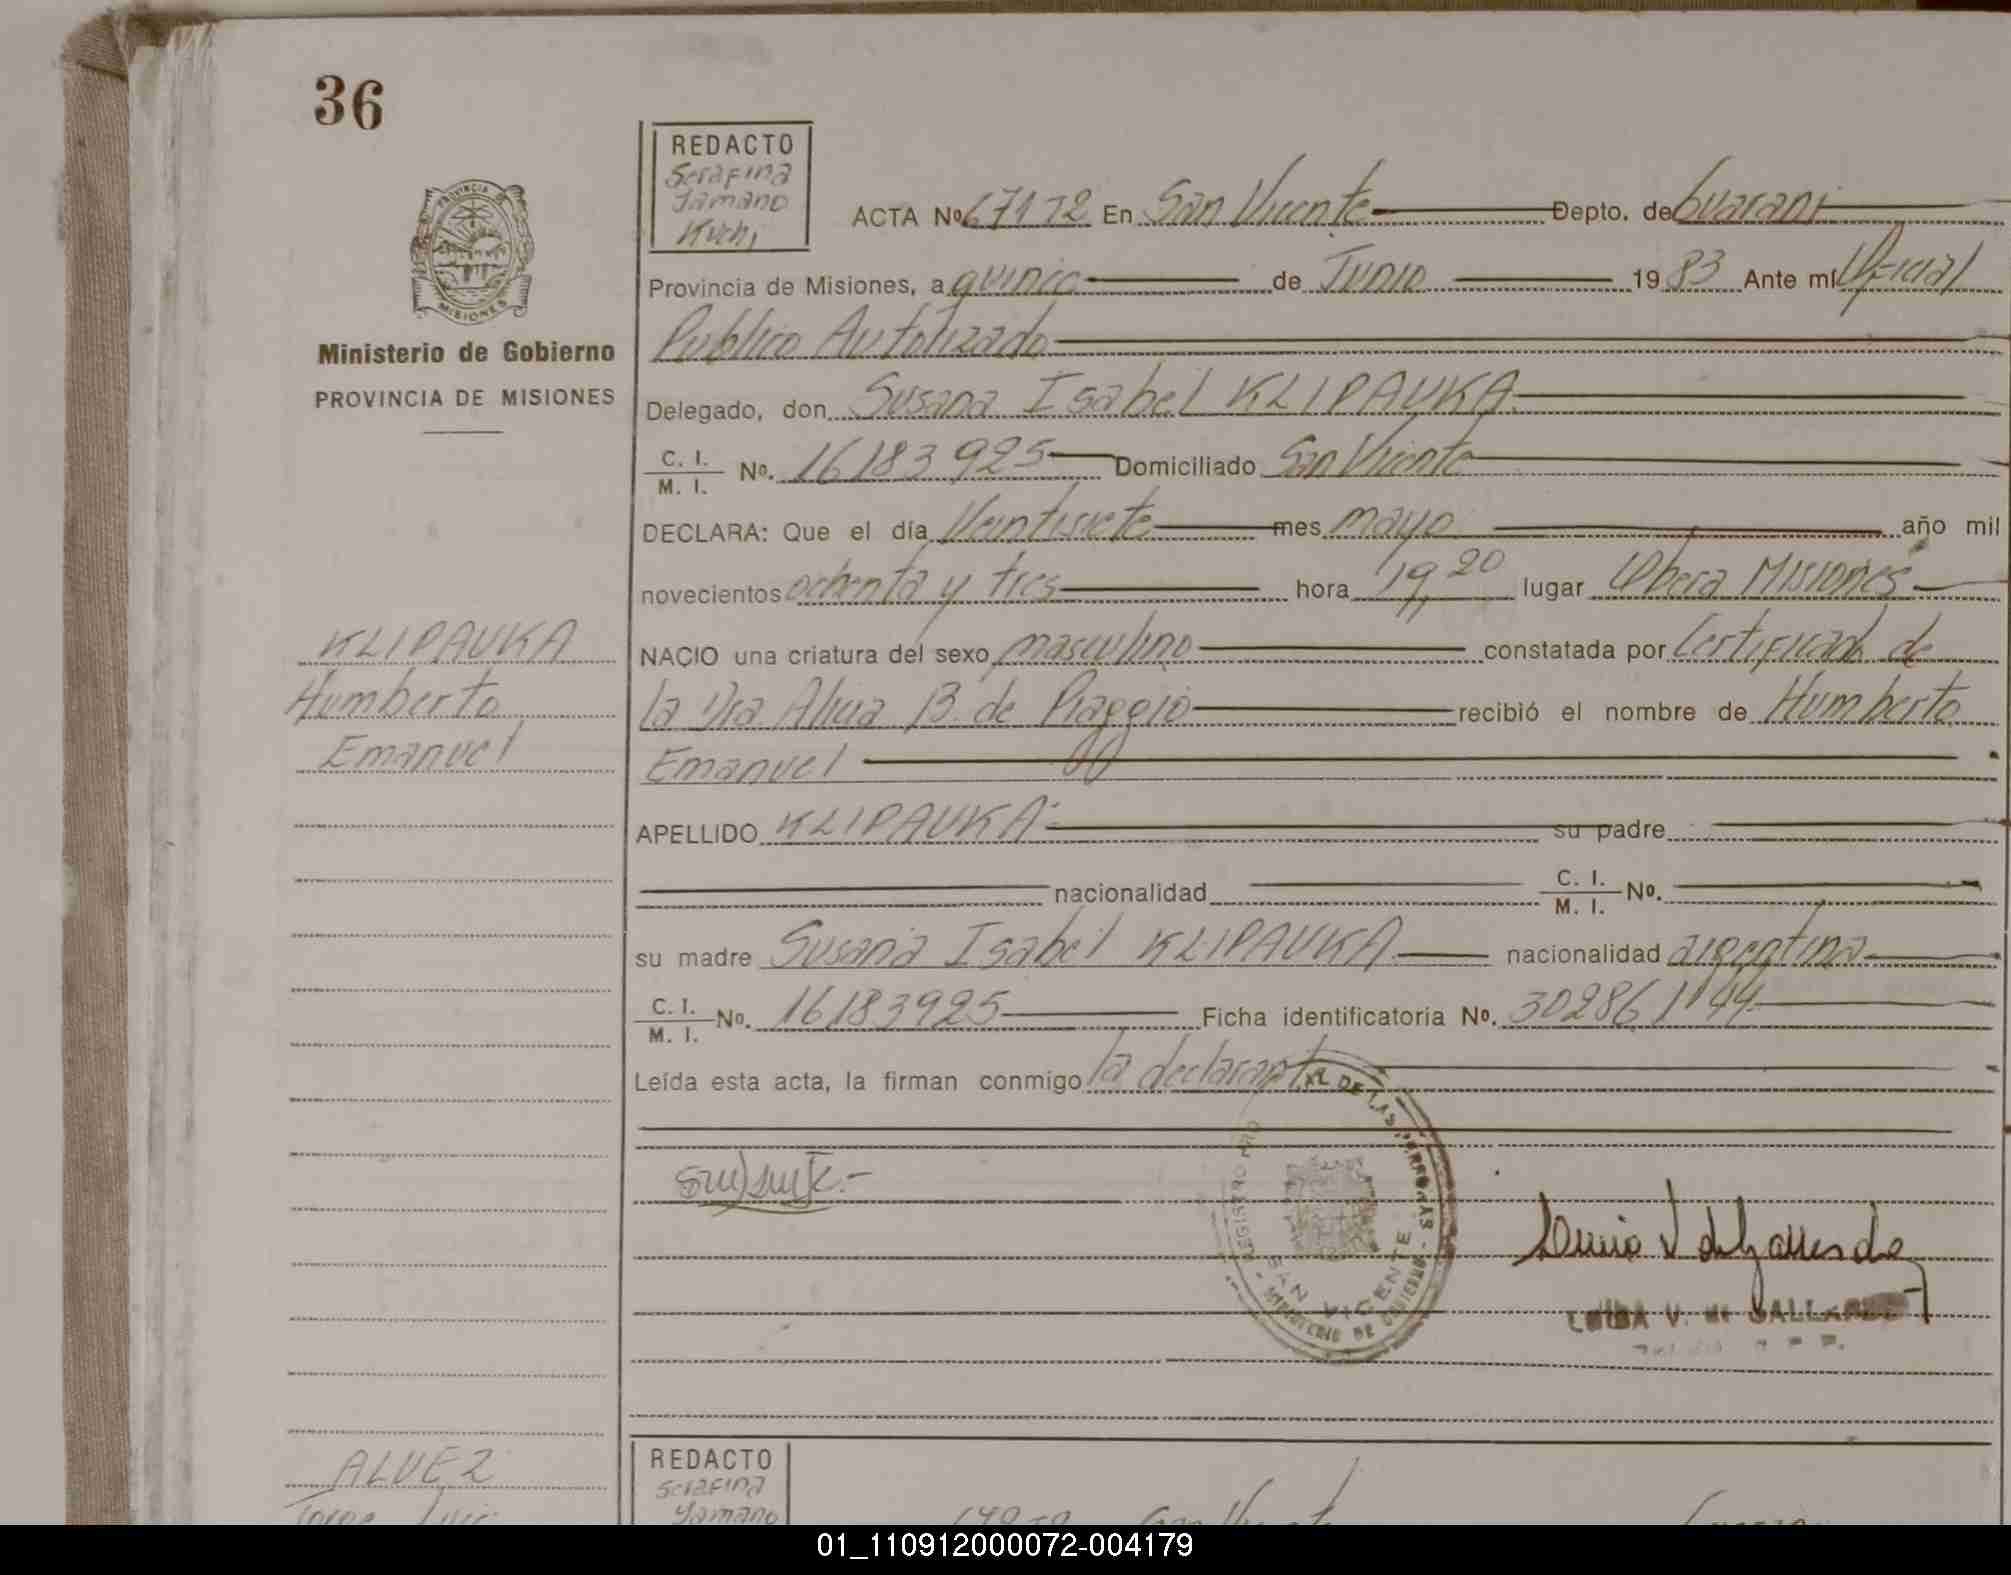 36
REDACTO
Serafina
Yamano
Kuchi
PROVINCIA DE
MISIONES
Ministerio de Gobierno
PROVINCIA DE MISIONES
ACTA Nº 671 T2 En San Vicente Depto. de Guarani
Provincia de Misiones, a quince de Junio 19 83 Ante mí Oficial
Publico Autorizado
Delegado, don Susana Isabel KLIPAUKA
C. I.
M. I. Nº. 16183925 Domiciliado San Vicente
DECLARA: Que el día Veintisiete mes mayo año mil
novecientos ochenta y tres hora 19,20 lugar Obera Misiones
NACIO una criatura del sexo masculino constatada por Certificado de
la Dra Alicia B. de Piaggio recibió el nombre de Humberto
Emanuel
KLIPAUKA
Humberto
Emanuel
APELLIDO KLIPAUKA su padre
nacionalidad C. I.
M. I. Nº.
su madre Susana Isabel KLIPAUKA nacionalidad argentina
C. I.
M. I. Nº. 16183925 Ficha identificatoria Nº.
Leída esta acta, la firman conmigo la declarante
DE LAS PERSONAS
SAN VICENTE
MINISTERIO DE GOBIERNO
ALVEZ
REDACTO
Serafina
Yamano
San Vicente
01_110912000072-004179